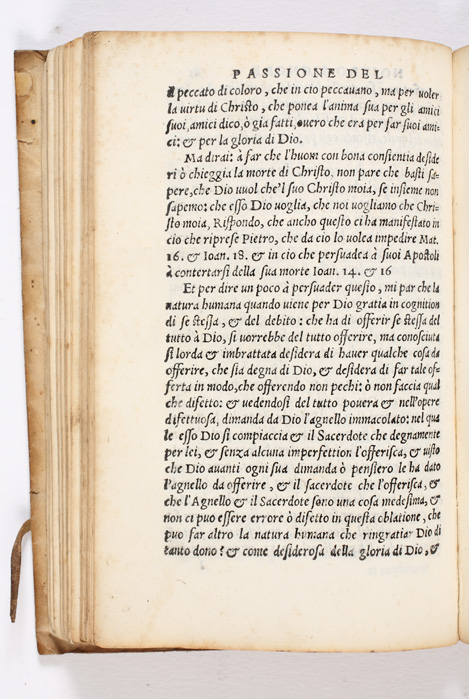 PASSIONE DEL
il peccato di coloro, che in cio peccauano, ma per uoler
la uirtu di Christo, che ponea l'anima sua per gli amici
suoi, amici dico, ò gia fatti, ouero che era per far suoi ami-
ci: & per la gloria di Dio.
Ma dirai: à far che l'huom con bona consientia deside
ri ò chieggia la morte di Christo, non pare che basti sa-
pere, che Dio uuol che'l suo Christo moia, se insieme non
sapemo: che esso Dio uoglia, che noi uogliamo che Chri-
sto moia, Rispondo, che ancho questo ci ha manifestato in
cio che riprese Pietro, che da cio lo uolea impedire Mat.
16. & Ioan. 18. & in cio che persuadea à suoi Apostoli
à contertarsi della sua morte Ioan. 14. & 16
Et per dire un poco à persuader questo, mi par che la
natura humana quando uiene per Dio gratia in cognition
di se stessa, & del debito: che ha di offerir se stessa del
tutto à Dio, si uorrebbe del tutto offerire, ma conosciuta
si lorda & imbrattata desidera di hauer qualche cosa da
offerire, che sia degna di Dio, & desidera di far tale of-
ferta in modo, che offerendo non pechi: ò non faccia qual
che difetto: & uedendosi del tutto pouera & nell'opere
difettuosa, dimanda da Dio l'agnello immacolato: nel qua
le esso Dio si compiaccia & il Sacerdote che degnamente
per lei, & senza alcuna imperfettion l'offerisca, & uisto
che Dio auanti ogni sua dimanda ò pensiero le ha dato
l'agnello da offerire, & il sacerdote che l'offerisca, &
che l'Agnello & il Sacerdote sono una cosa medesima, &
non ci puo essere errore ò difetto in questa oblatione, che
puo far altro la natura humana che ringratiar Dio di
tanto dono? & come desiderosa della gloria di Dio, &